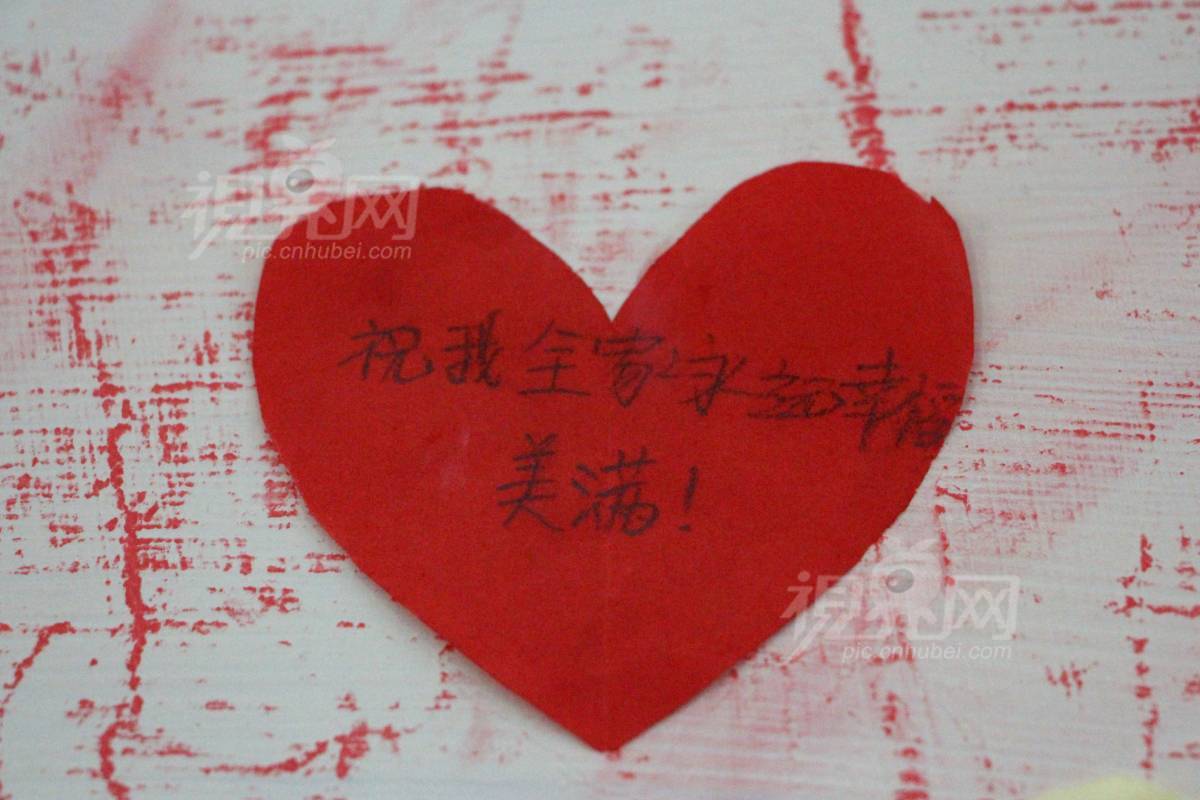 视界网
pic.cnhubei.com
祝我全家永远幸福
美满！
视界网
pic.cnhubei.com